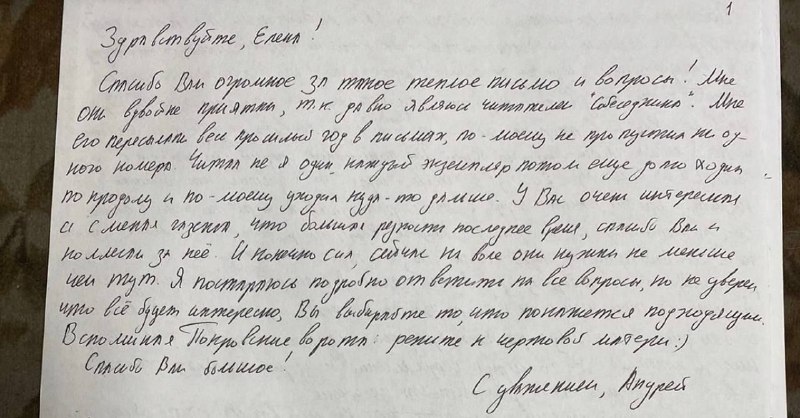 1
Здравствуйте, Елена!
Спасибо Вам огромное за такое теплое письмо и вопросы! Мне
они вдвойне приятны, т.к. давно являюсь читателем "Собеседника". Мне
его пересылали весь прошлый год в письмах, по-моему не пропустил ни од-
ного номера. Читал не я один, каждый экземпляр потом еще долго ходил
по продолу и по-моему уходил куда-то дальше. У Вас очень интересная
и смелая газета, что большая редкость последнее время, спасибо Вам и
коллегам за неё. И конечно сил, сейчас на воле они нужны не меньше
чем тут. Я постараюсь подробно ответить на все вопросы, но не уверен
что всё будет интересно, Вы выбирайте то, что покажется подходящим.
Вспоминая Покровские ворота: режьте к чертовой матери :)
Спасибо Вам большое!
С уважением, Андрей